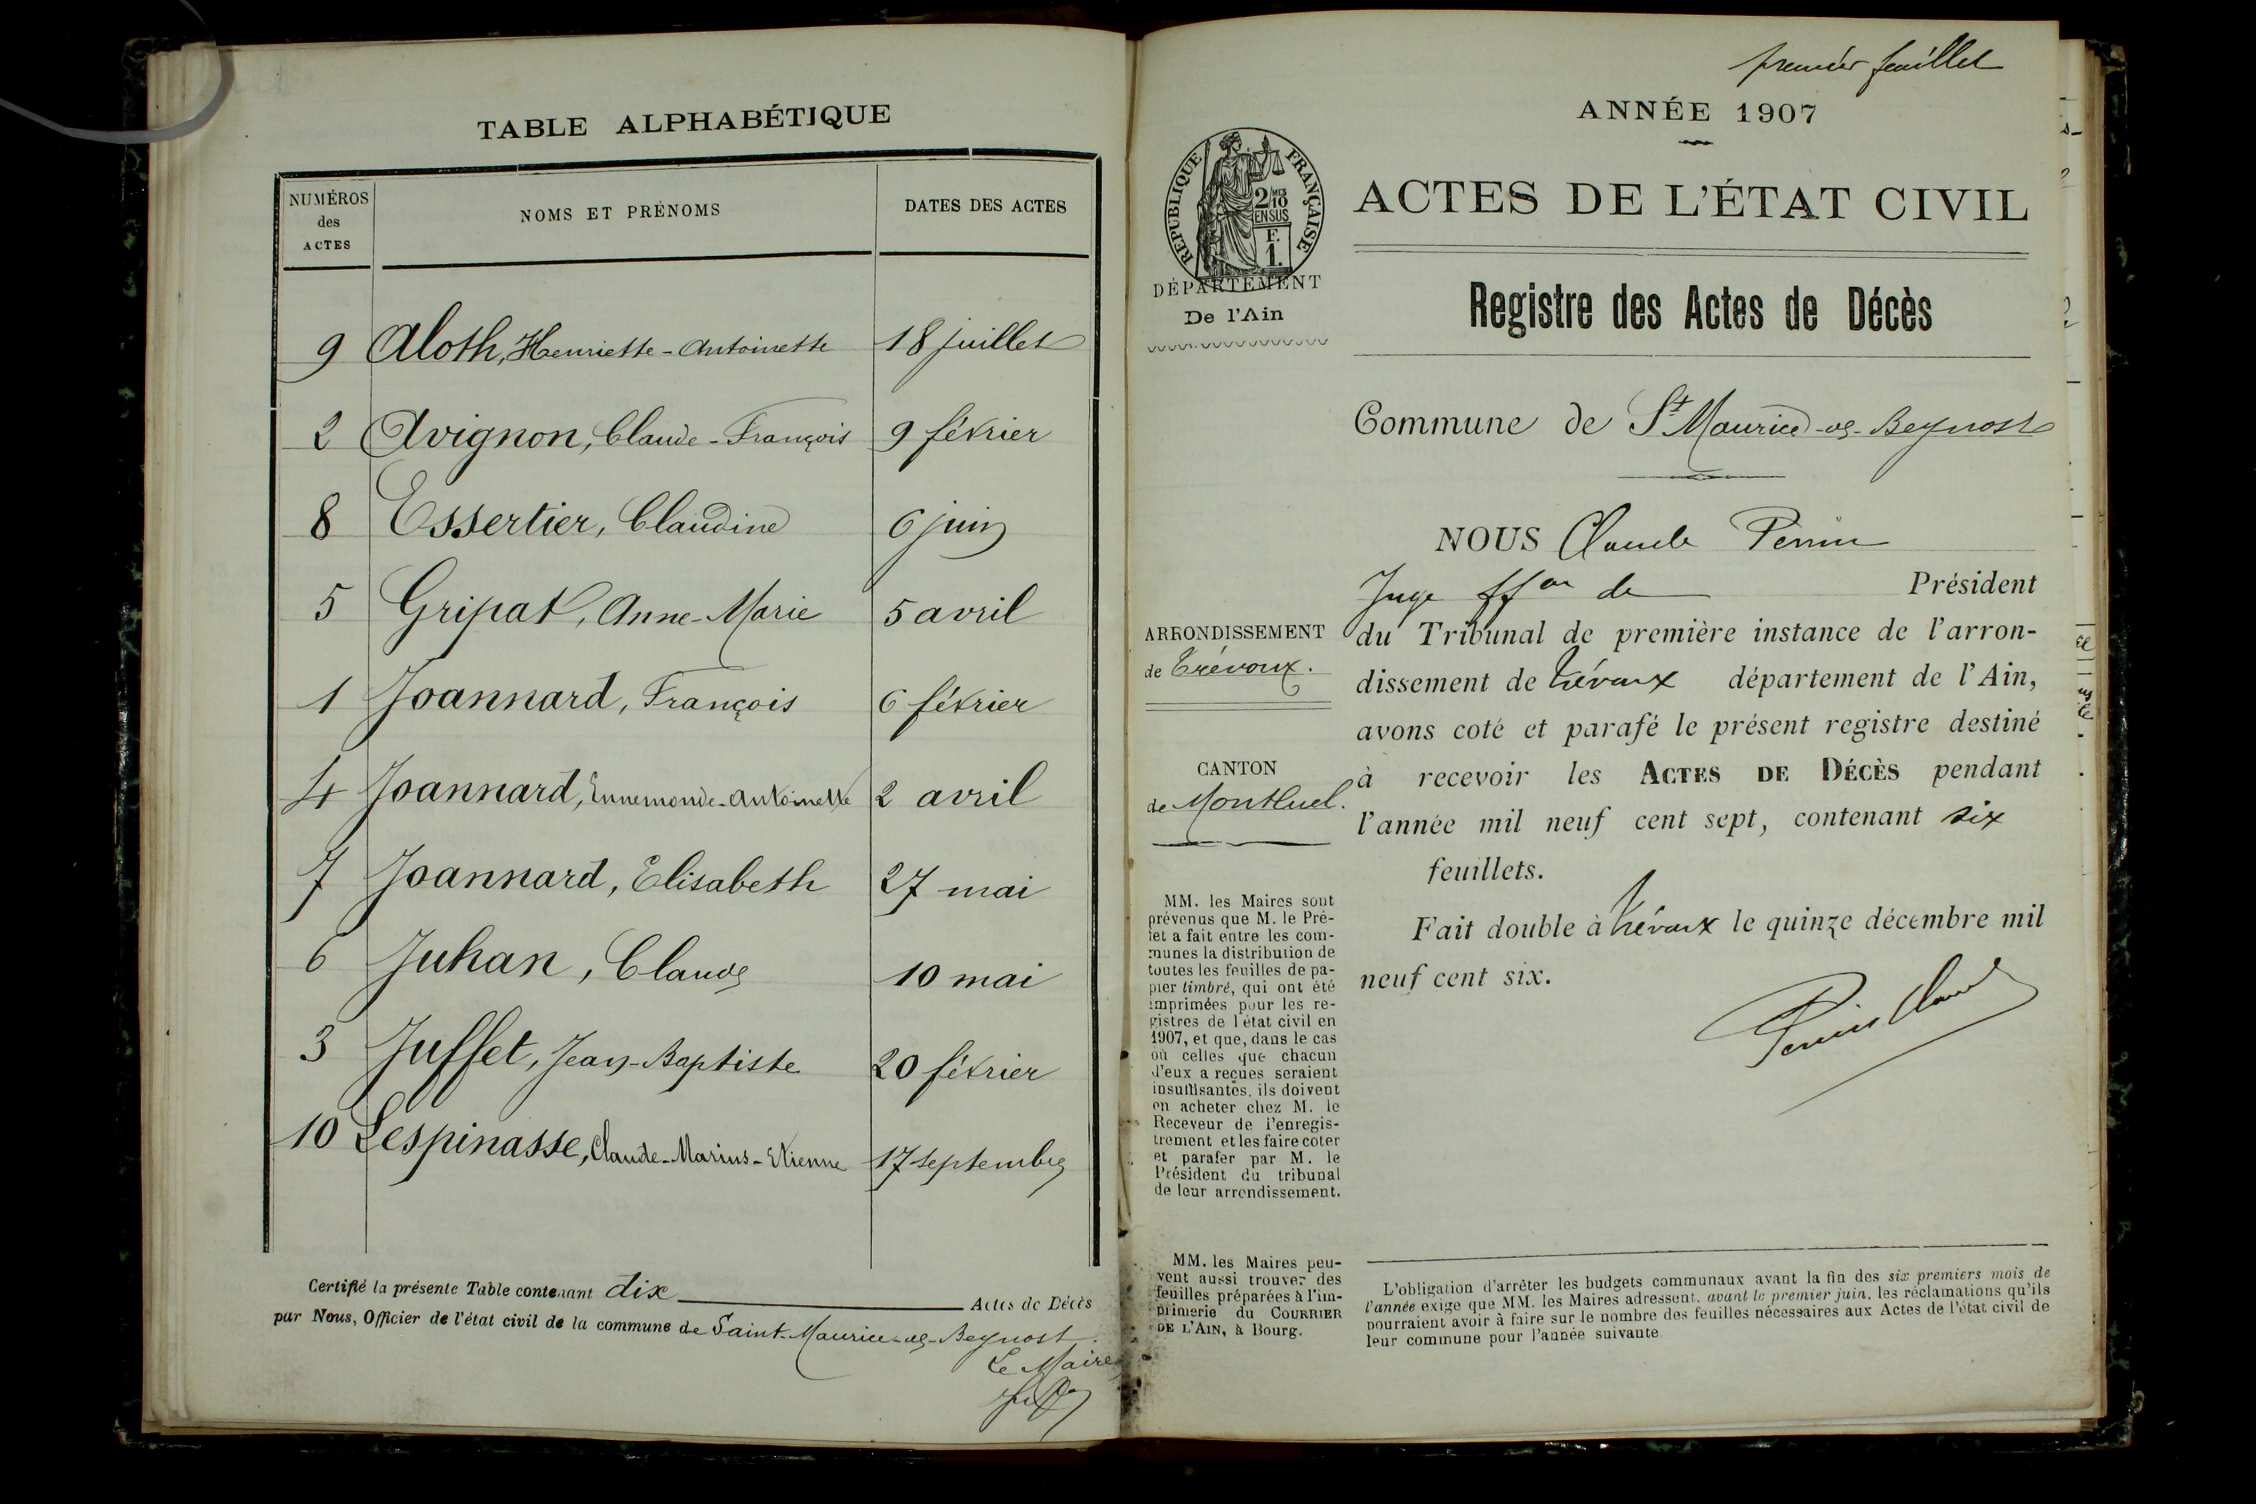 TABLE ALPHABÉTIQUE
NUMÉROS
des
ACTES
NOMS ET PRÉNOMS
DATES DES ACTES
9 Aloth, Henriette-Antoinette 18 juillet
2 Avignon, Claude-François 9 février
8 Essertier, Claudine 6 juin
5 Gripat, Anne-Marie 5 avril
1 Joannard, François 6 février
4 Joannard, Ennemonde-Antoinette 2 avril
7 Joannard, Elisabeth 27 mai
6 Juhan, Claude 10 mai
3 Juffet, Jean-Baptiste 20 février
10 Lespinasse, Claude-Marius-Etienne 17 septembre
Certifié la présente Table contenant dix Actes de Décès
par Nous, Officier de l'état civil de la commune de Saint-Maurice-de-Beynost.
Le Maire
premier feuillet
ANNÉE 1907
RÉPUBLIQUE FRANÇAISE
2/10 MES
EN SUS
F.
1.
DÉPARTEMENT
De l'Ain
ACTES DE L'ÉTAT CIVIL
Registre des Actes de Décès
Commune de St Maurice-de-Beynost
ARRONDISSEMENT
de Trévoux.
CANTON
de Montluel.
MM. les Maires sont
prévenus que M. le Pré-
fet a fait entre les com-
munes la distribution de
toutes les feuilles de pa-
pier timbré, qui ont été
imprimées pour les re-
gistres de l'état civil en
1907, et que, dans le cas
où celles que chacun
d'eux a reçues seraient
insuffisantes, ils doivent
en acheter chez M. le
Receveur de l'enregis-
trement et les faire coter
et parafer par M. le
Président du tribunal
de leur arrondissement.
MM. les Maires peu-
vent aussi trouver des
feuilles préparées à l'im-
primerie du COURRIER
DE L'AIN, à Bourg.
NOUS Claude Perrin
Juge ffon de Président
du Tribunal de première instance de l'arron-
dissement de Trévoux département de l'Ain,
avons coté et parafé le présent registre destiné
à recevoir les ACTES DE DÉCÈS pendant
l'année mil neuf cent sept, contenant six
feuillets.
Fait double à Trévoux le quinze décembre mil
neuf cent six.
Perrin Claude
L'obligation d'arrêter les budgets communaux avant la fin des six premiers mois de
l'année exige que MM. les Maires adressent, avant le premier juin, les réclamations qu'ils
pourraient avoir à faire sur le nombre des feuilles nécessaires aux Actes de l'état civil de
leur commune pour l'année suivante